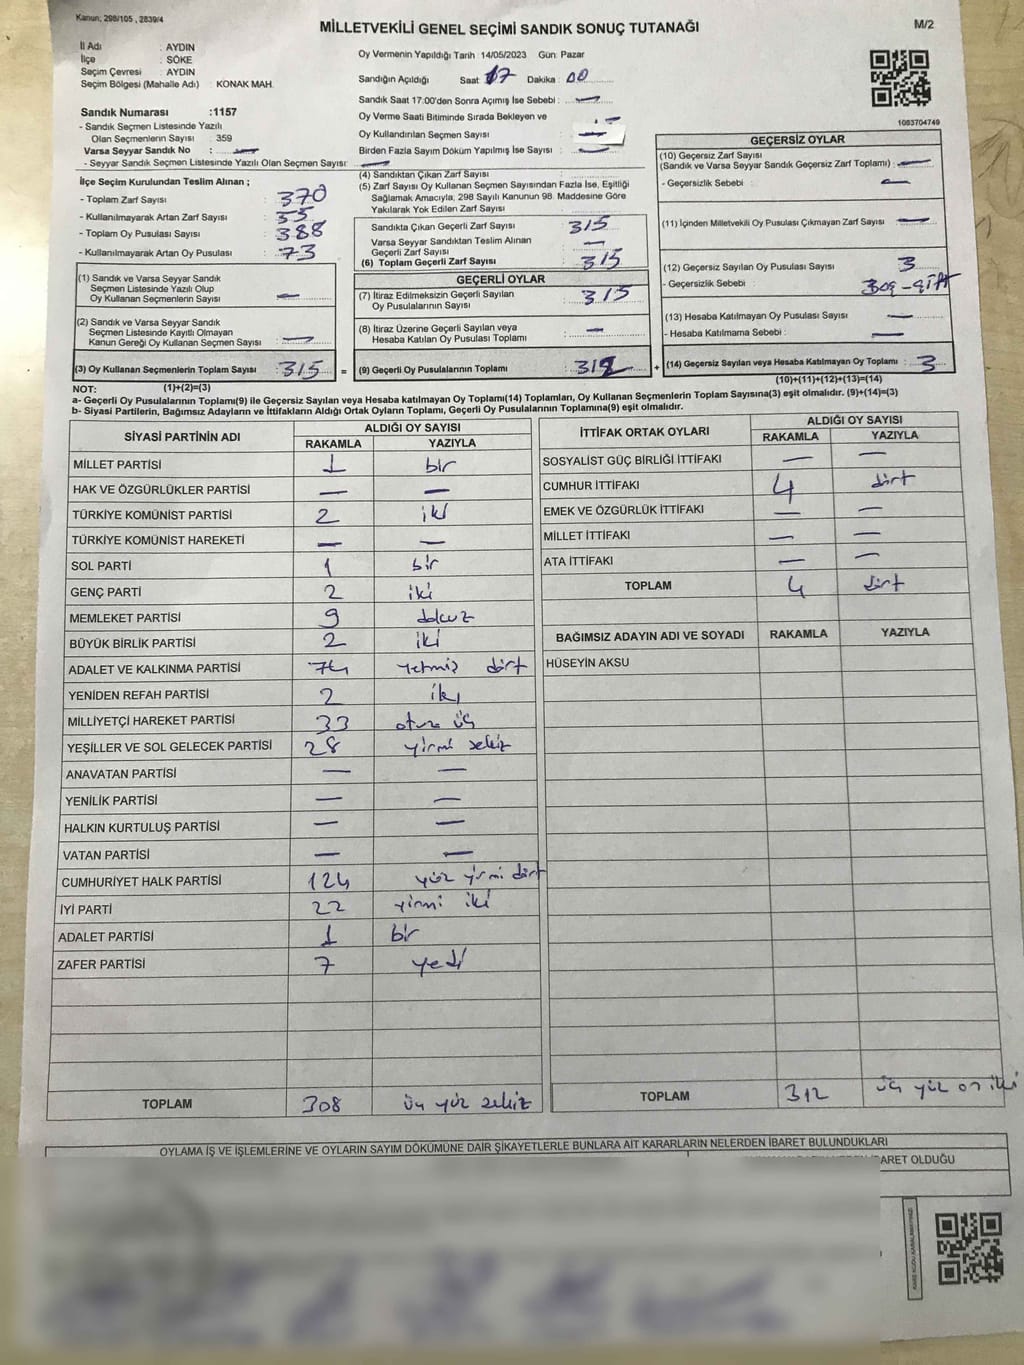 Kanun: 298/105 , 2839/4
MİLLETVEKİLİ GENEL SEÇİMİ SANDIK SONUÇ TUTANAĞI
M/2
İl Adı : AYDIN
İlçe : SÖKE
Seçim Çevresi : AYDIN
Seçim Bölgesi (Mahalle Adı) : KONAK MAH.
Sandık Numarası :1157
- Sandık Seçmen Listesinde Yazılı
Olan Seçmenlerin Sayısı : 359
Varsa Seyyar Sandık No : —
- Seyyar Sandık Seçmen Listesinde Yazılı Olan Seçmen Sayısı: —
Oy Vermenin Yapıldığı Tarih 14/05/2023 Gün: Pazar
Sandığın Açıldığı Saat 17 Dakika : 00
Sandık Saat 17:00'den Sonra Açımış İse Sebebi : —
Oy Verme Saati Bitiminde Sırada Bekleyen ve
Oy Kullandırılan Seçmen Sayısı : —
Birden Fazla Sayım Döküm Yapılmış İse Sayısı : —
1083704749
İlçe Seçim Kurulundan Teslim Alınan ;
- Toplam Zarf Sayısı : 370
- Kullanılmayarak Artan Zarf Sayısı : 55
- Toplam Oy Pusulası Sayısı : 388
- Kullanılmayarak Artan Oy Pusulası : 73
(1) Sandık ve Varsa Seyyar Sandık
Seçmen Listesinde Yazılı Olup
Oy Kullanan Seçmenlerin Sayısı : —
(2) Sandık ve Varsa Seyyar Sandık
Seçmen Listesinde Kayıtlı Olmayan
Kanun Gereği Oy Kullanan Seçmen Sayısı : —
(3) Oy Kullanan Seçmenlerin Toplam Sayısı : 315 =
(4) Sandıktan Çıkan Zarf Sayısı :
(5) Zarf Sayısı Oy Kullanan Seçmen Sayısından Fazla İse, Eşitliği
Sağlamak Amacıyla, 298 Sayılı Kanunun 98. Maddesine Göre
Yakılarak Yok Edilen Zarf Sayısı :
Sandıkta Çıkan Geçerli Zarf Sayısı : 315
Varsa Seyyar Sandıktan Teslim Alınan
Geçerli Zarf Sayısı : —
(6) Toplam Geçerli Zarf Sayısı : 315
GEÇERLİ OYLAR
(7) İtiraz Edilmeksizin Geçerli Sayılan
Oy Pusulalarının Sayısı : 315
(8) İtiraz Üzerine Geçerli Sayılan veya
Hesaba Katılan Oy Pusulası Toplamı : —
(9) Geçerli Oy Pusulalarının Toplamı : 312 +
GEÇERSİZ OYLAR
(10) Geçersiz Zarf Sayısı
(Sandık ve Varsa Seyyar Sandık Geçersiz Zarf Toplamı) : —
- Geçersizlik Sebebi : —
(11) İçinden Milletvekili Oy Pusulası Çıkmayan Zarf Sayısı : —
(12) Geçersiz Sayılan Oy Pusulası Sayısı : 3
- Geçersizlik Sebebi : Boş-Çift
(13) Hesaba Katılmayan Oy Pusulası Sayısı : —
- Hesaba Katılmama Sebebi : —
(14) Geçersiz Sayılan veya Hesaba Katılmayan Oy Toplamı : 3
NOT: (1)+(2)=(3)
(10)+(11)+(12)+(13)=(14)
a- Geçerli Oy Pusulalarının Toplamı(9) ile Geçersiz Sayılan veya Hesaba katılmayan Oy Toplamı(14) Toplamları, Oy Kullanan Seçmenlerin Toplam Sayısına(3) eşit olmalıdır. (9)+(14)=(3)
b- Siyasi Partilerin, Bağımsız Adayların ve İttifakların Aldığı Ortak Oyların Toplamı, Geçerli Oy Pusulalarının Toplamına(9) eşit olmalıdır.
SİYASİ PARTİNİN ADI ALDIĞI OY SAYISI
RAKAMLA YAZIYLA
MİLLET PARTİSİ 1 bir
HAK VE ÖZGÜRLÜKLER PARTİSİ — —
TÜRKİYE KOMÜNİST PARTİSİ 2 iki
TÜRKİYE KOMÜNİST HAREKETİ — —
SOL PARTİ 1 bir
GENÇ PARTİ 2 iki
MEMLEKET PARTİSİ 9 dokuz
BÜYÜK BİRLİK PARTİSİ 2 iki
ADALET VE KALKINMA PARTİSİ 74 yetmiş dört
YENİDEN REFAH PARTİSİ 2 iki
MİLLİYETÇİ HAREKET PARTİSİ 33 otuz üç
YEŞİLLER VE SOL GELECEK PARTİSİ 28 yirmi sekiz
ANAVATAN PARTİSİ — —
YENİLİK PARTİSİ — —
HALKIN KURTULUŞ PARTİSİ — —
VATAN PARTİSİ — —
CUMHURİYET HALK PARTİSİ 124 yüz yirmi dört
İYİ PARTİ 22 yirmi iki
ADALET PARTİSİ 1 bir
ZAFER PARTİSİ 7 yedi
TOPLAM 308 üç yüz sekiz
İTTİFAK ORTAK OYLARI ALDIĞI OY SAYISI
RAKAMLA YAZIYLA
SOSYALİST GÜÇ BİRLİĞİ İTTİFAKI — —
CUMHUR İTTİFAKI 4 dört
EMEK VE ÖZGÜRLÜK İTTİFAKI — —
MİLLET İTTİFAKI — —
ATA İTTİFAKI — —
TOPLAM 4 dört
BAĞIMSIZ ADAYIN ADI VE SOYADI RAKAMLA YAZIYLA
HÜSEYİN AKSU
TOPLAM 312 üç yüz on iki
OYLAMA İŞ VE İŞLEMLERİNE VE OYLARIN SAYIM DÖKÜMÜNE DAİR ŞİKAYETLERLE BUNLARA AİT KARARLARIN NELERDEN İBARET BULUNDUKLARI
BARET OLDUĞU